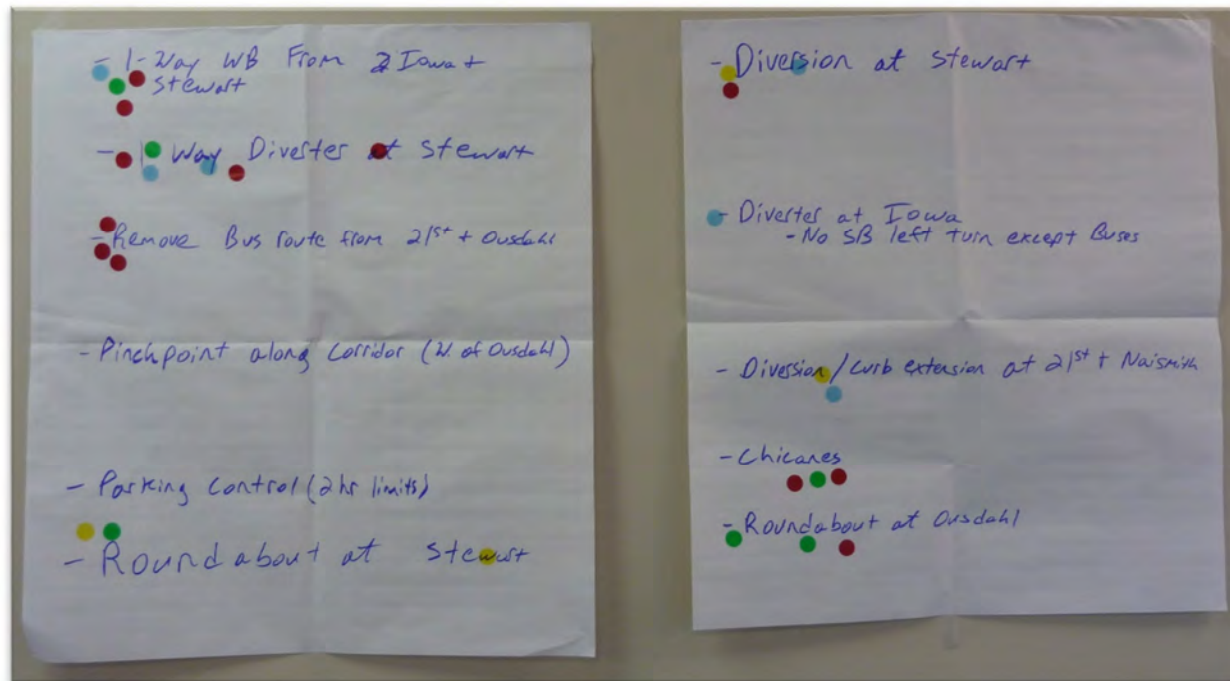 - 1-Way WB From Iowa +
Stewart
- 1 Way Diverter at Stewart
- Remove Bus route from 21st + Ousdahl
- Pinchpoint along Corridor (W. of Ousdahl)
- Parking Control (2 hr limits)
- Roundabout at Stewart
- Diversion at Stewart
- Diverter at Iowa
- No SB left turn except Buses
- Diversion/Curb extension at 21st + Naismith
- Chicanes
- Roundabout at Ousdahl